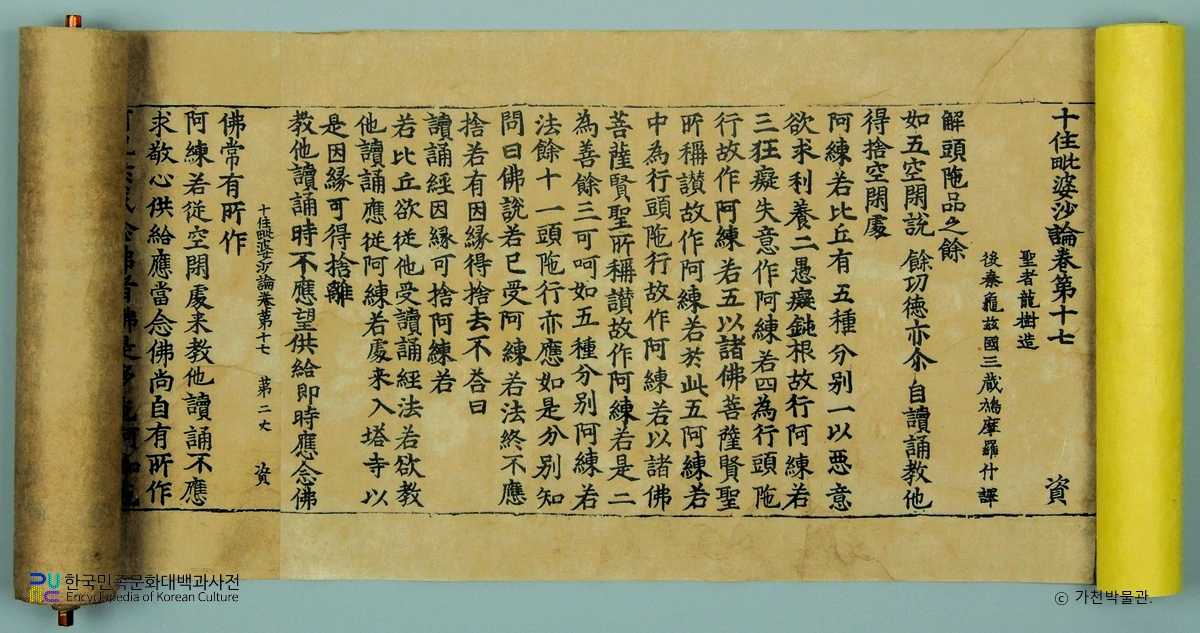 十住毗婆沙論卷第十七 資
聖者龍樹造
後秦龜茲國三藏鳩摩羅什譯
解頭陁品之餘
如五空閑說 餘功德亦尒 自讀誦教他
得捨空閑處
阿練若比丘有五種分別一以惡意
欲求利養二愚癡鈍根故行阿練若
三狂癡失意作阿練若四為行頭陁
行故作阿練若五以諸佛菩薩賢聖
所稱讃故作阿練若於此五阿練若
中為行頭陁行故作阿練若以諸佛
菩薩賢聖所稱讃故作阿練若是二
為善餘三可呵如五種分別阿練若
法餘十一頭陁行亦應如是分別知
問曰佛說若已受阿練若法終不應
捨若有因緣得捨去不荅曰
讀誦經因緣可捨阿練若
若比丘欲從他受讀誦經法若欲教
他讀誦應從阿練若處来入塔寺以
是因緣可得捨離
教他讀誦時不應望供給即時應念佛
十住毗婆沙論卷第十七 第二丈 資
佛常有所作
阿練若從空閑處来教他讀誦不應
求敬心供給應當念佛尚自有所作
한국민족문화대백과사전
Encyclopedia of Korean Culture
© 가천박물관.